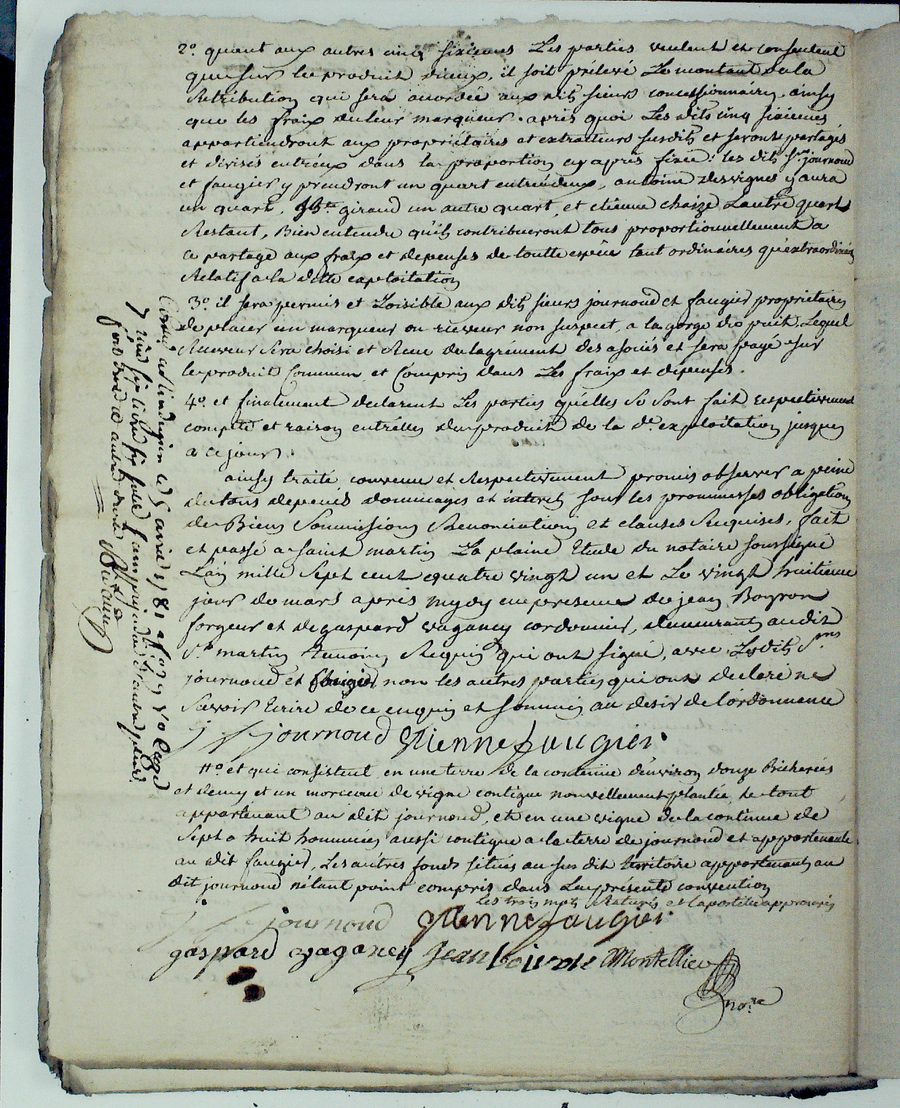 2o. quant aux autres cinq sixiemes Les parties veulent et consentent
que sur le produit d'iceux, il soit prélevé Le montant de la
Retribution qui sera accordée aux dits sieurs concessionnaires, ainsy
que les fraix du leur marqueur. après quoi Les dits cinq sixiemes
appartiendront aux propriétaires et extracteurs susdits et seront partagés
et divisés entr'eux dans la proportion cy après fixée: les dits Srs journoud
et faugier y prendront un quart entr'eux deux, antoine desvignes y aura
un quart, giraud un autre quart, et etienne chaize L'autre quart
Restant, Bien entendu qu'ils contribueront tous proportionnellement a
ce partage aux fraix et depenses de toutte espèce tant ordinaires qu'extraordinaires
Relatif a la ditte exploitation
3o. il sera permis et Loisible aux dits sieurs journoud et faugier propriétaires
de placer un marqueur ou receveur non suspect, a la gorge du puit, Lequel
Receveur sera choisi et Reçu de l'agrément des asociés et sera payé sur
le produit Commun et Compris dans Les fraix et dépenses.
4o. et finalement declarent Les parties qu'elles se sont fait respectivement
compte et raison entr'elles du produit de la de. exploitation jusques
a ce jour.
ainsy traité, convenu et Respectivement promis observer a peine
de tous depends dommages et interets sous les prommesses obligation
de Biens Soumissions Renonciations et clauses Requises, fait
et passé a saint martin La plaine Etude du notaire soussigné
L'an mille sept cent quatre vingt un et Le vingt huitieme
jour de mars après mydy en presence de jean Boyron
forgeur et de gaspard vagancy cordonnier, demeurants audit
St. martin temoins Requis qui ont signé, avec Lesdits Srs
journoud et faugier, non les autres parties qui ont declaré ne
savoir Ecrire de ce enquis et sommés au desir de L'ordonnance
journoud etienne faugier.
et qui consistent en une terre de la contenüe d'environ douze Bicherées
et demy et un morceau de vigne contigue nouvellement plantée, le tout
appartenant au dit journoud, et en une vigne de la continue de
sept a huit hommées aussi contigue a la terre de journoud et appartenante
au dit faugier, Les autres fonds situés au sus dit territoire appartenants au
dit journoud n'étant point compris dans La présente convention
Les trois mots Raturés et l'apostille approuvés
journoud etienne faugier.
gaspard vagancy jean boiron Montellier
nore